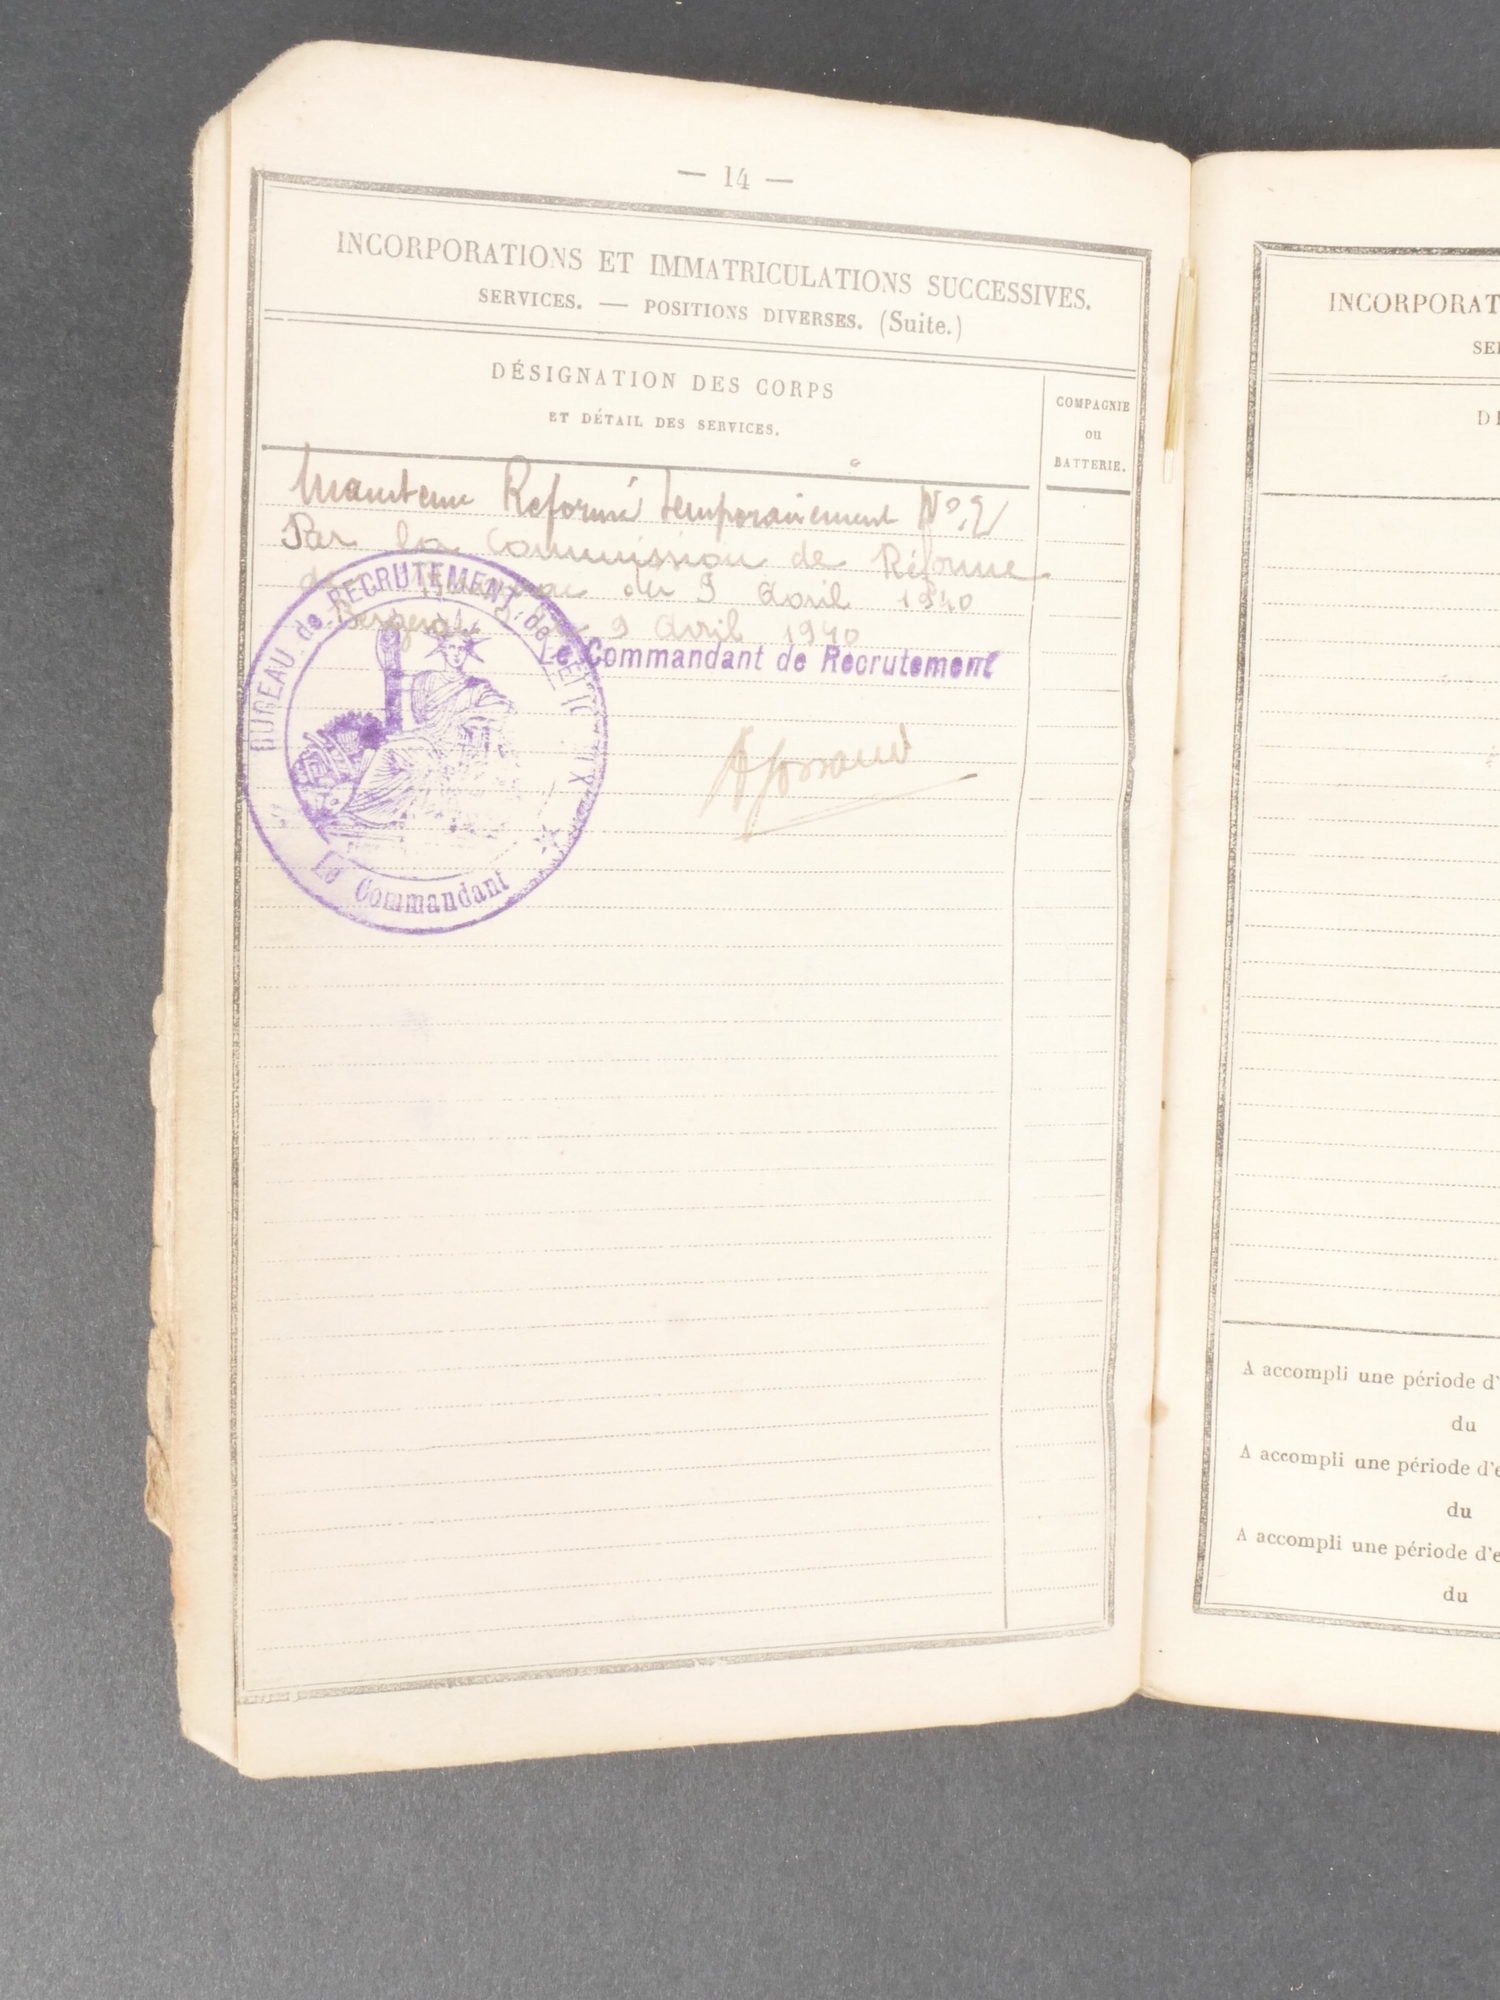 — 14 —
INCORPORATIONS ET IMMATRICULATIONS SUCCESSIVES.
SERVICES. — POSITIONS DIVERSES. (Suite.)
DÉSIGNATION DES CORPS
ET DÉTAIL DES SERVICES.
COMPAGNIE
ou
BATTERIE.
Maintenu Réformé temporairement N° 2
Par la Commission de Réforme
de Bergerac du 9 Avril 1940
Bergerac le 9 Avril 1940
Le Commandant de Recrutement
BUREAU de RECRUTEMENT de
Le Commandant
INCORPORAT
SE
DE
A accompli une période d'
du
A accompli une période d'e
du
A accompli une période d'e
du